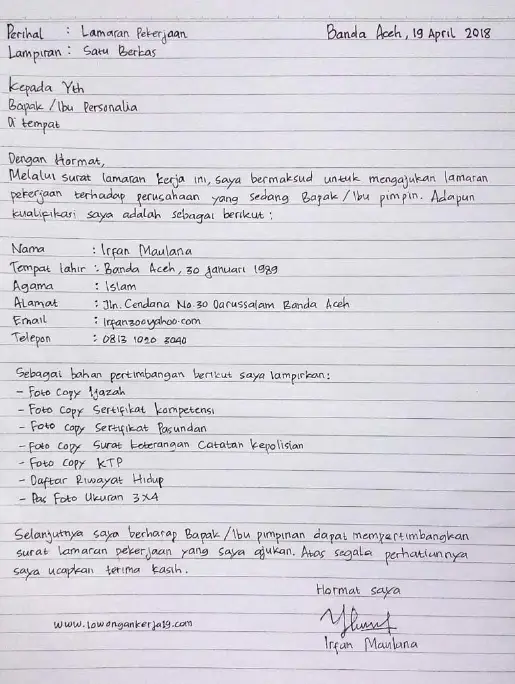 Perihal : Lamaran Pekerjaan Banda Aceh, 19 April 2018
Lampiran : Satu Berkas
Kepada Yth
Bapak / Ibu Personalia
Di tempat
Dengan Hormat,
Melalui surat lamaran kerja ini, saya bermaksud untuk mengajukan lamaran
pekerjaan terhadap perusahaan yang sedang Bapak / Ibu pimpin. Adapun
kualifikasi saya adalah sebagai berikut :
Nama : Irfan Maulana
Tempat lahir : Banda Aceh, 30 Januari 1989
Agama : Islam
Alamat : Jln. Cendana No. 30 Darussalam Banda Aceh
Email : Irfan300yahoo.com
Telepon : 0813 1020 3040
Sebagai bahan pertimbangan berikut saya lampirkan :
- Foto Copy Ijazah
- Foto Copy Sertifikat kompetensi
- Foto Copy Sertifikat Pasundan
- Foto Copy Surat keterangan Catatan kepolisian
- Foto Copy KTP
- Daftar Riwayat Hidup
- Pas Foto Ukuran 3x4
Selanjutnya saya berharap Bapak / Ibu pimpinan dapat mempertimbangkan
surat lamaran pekerjaan yang saya ajukan. Atas segala perhatiannya
saya ucapkan terima kasih.
Hormat saya
www.lowongankerja19.com
Irfan Maulana